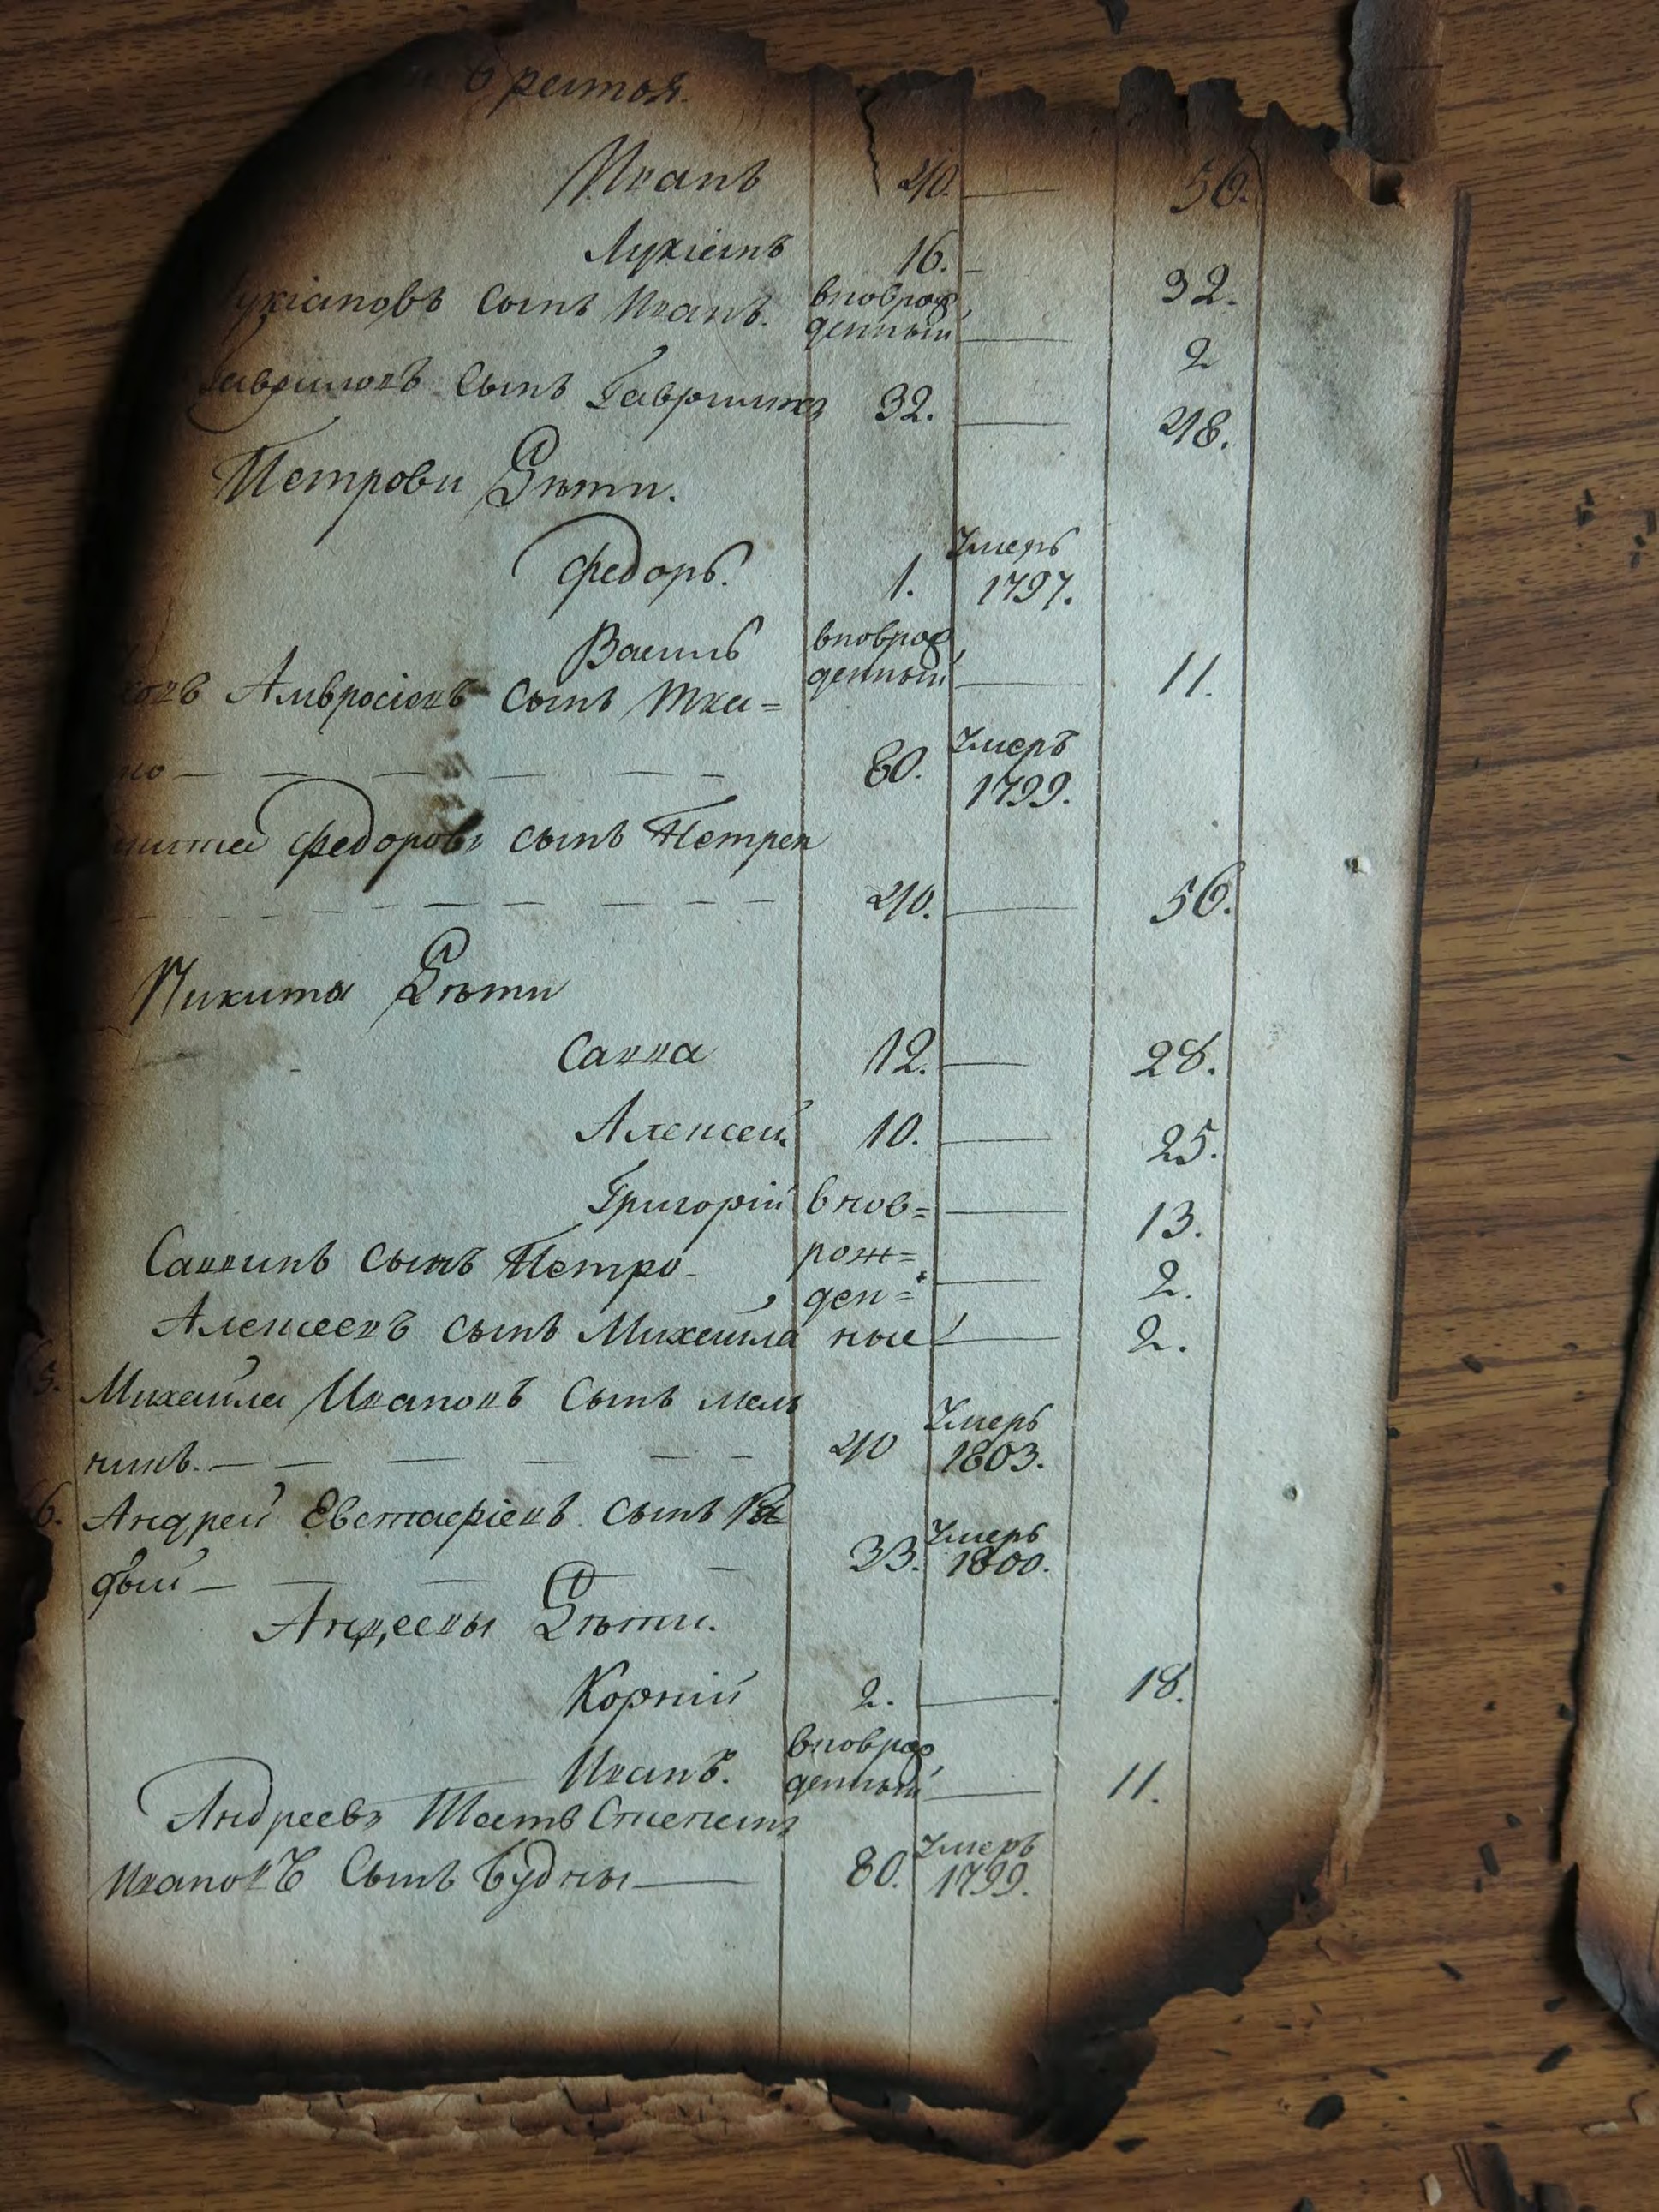 Иванъ 40. — 56.
Лукіянъ 16. — 32.
укіяновъ сынъ Иванъ. вновврож
денный — 2
авриловъ сынъ Гаврилма 32. — 48.
Петрови Дѣти.
Федоръ. 1. Умеръ 1797.
Василь вноврож
денный — 11.
Амвросіевъ сынъ Тка=
но — — — — — — 80. Умеръ 1799.
Федоровъ сынъ Петрен
— — — — — — 40. — 56.
Никиты Дѣти
Савва 12. — 28.
Алексей 10. — 25.
Григорій внов= — 13.
Саввинъ сынъ Петро рож=
ден= — 2.
Алексеевъ сынъ Михайла ные — 2.
5. Михайла Ивановъ сынъ мель
никъ. — — — — — 40 Умеръ 1803.
6. Андрей Евстафіевъ сынъ
дый — — — — 33. Умеръ 1800.
Андреевы Дѣти.
Корній 2. — 18.
Иванъ. вноврож
денный — 11.
Андреевъ Тесть Степанъ
Ивановъ Сынъ Будны — 80. Умеръ 1799.